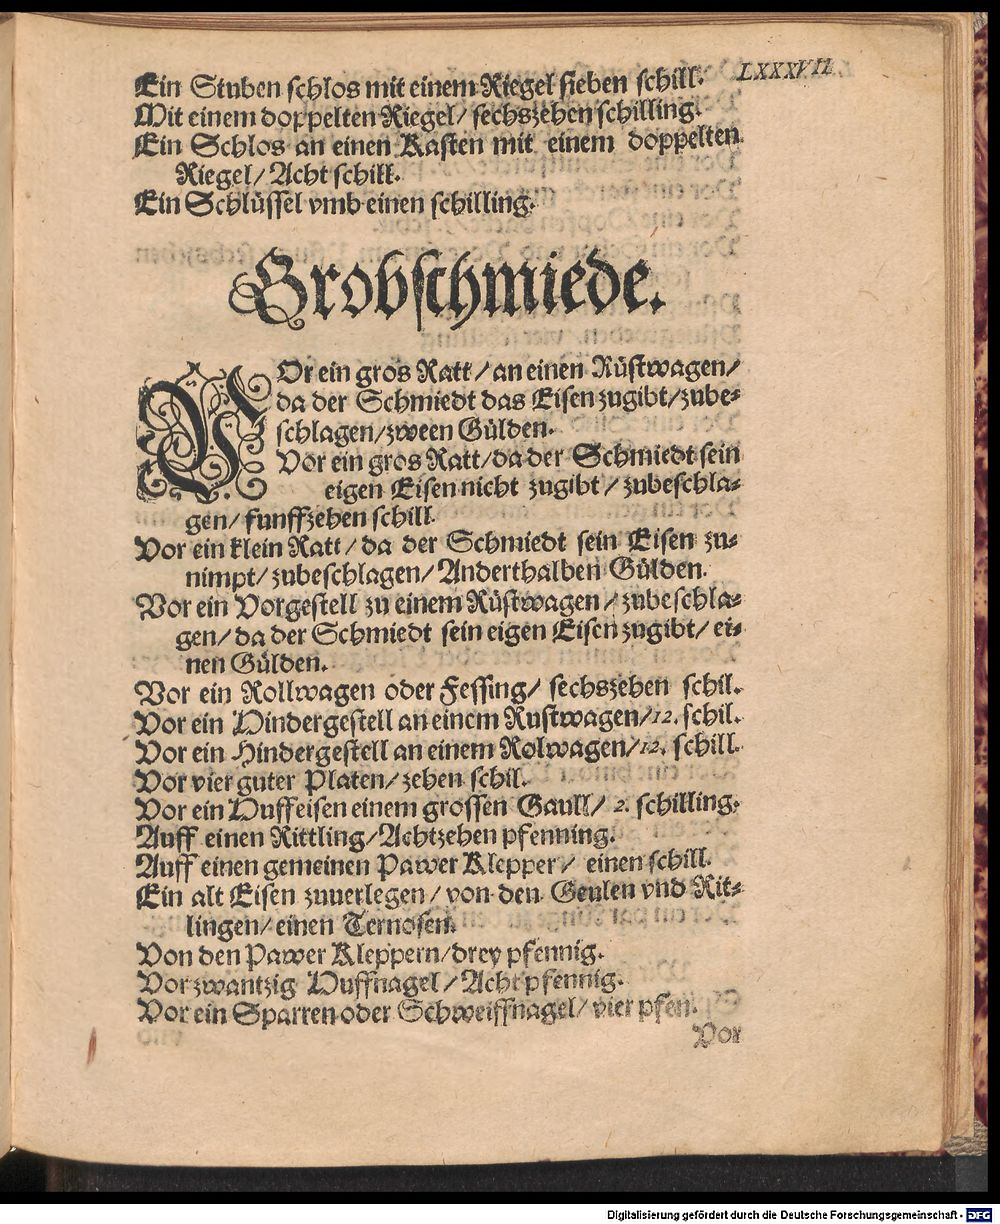 LXXXVII
Ein Stuben schlos mit einem Riegel sieben schill.
Mit einem doppelten Riegel/ sechszehen schilling.
Ein Schlos an einen Kasten mit einem doppelten
Riegel/ Acht schill.
Ein Schlüssel vmb einen schilling.
Grobschmiede.
VOr ein gros Ratt/ an einen Rüstwagen/
da der Schmiedt das Eisen zugibt/ zube-
schlagen/ zween Gülden.
Vor ein gros Ratt/ da der Schmiedt sein
eigen Eisen nicht zugibt/ zubeschla-
gen/ funffzehen schill.
Vor ein klein Ratt/ da der Schmiedt sein Eisen zu-
nimpt/ zubeschlagen/ Anderthalben Gülden.
Vor ein Vorgestell zu einem Rüstwagen/ zubeschla-
gen/ da der Schmiedt sein eigen Eisen zugibt/ ei-
nen Gülden.
Vor ein Rollwagen oder Fessing/ sechszehen schil.
Vor ein Hindergestell an einem Rustwagen/ 12. schil.
Vor ein Hindergestell an einem Rolwagen/ 12. schill.
Vor vier guter Platen/ zehen schil.
Vor ein Huffeisen einem grossen Gaull/ 2. schilling.
Auff einen Rittling/ Achtzehen pfenning.
Auff einen gemeinen Pawer Klepper/ einen schill.
Ein alt Eisen zuuerlegen/ von den Geulen vnd Rit-
lingen/ einen Ternosen.
Von den Pawer Kleppern/ drey pfennig.
Vor zwantzig Huffnagel/ Acht pfennig.
Vor ein Sparren oder Schweiffnagel/ vier pfen.
Vor
Digitalisierung gefördert durch die Deutsche Forschungsgemeinschaft - DFG